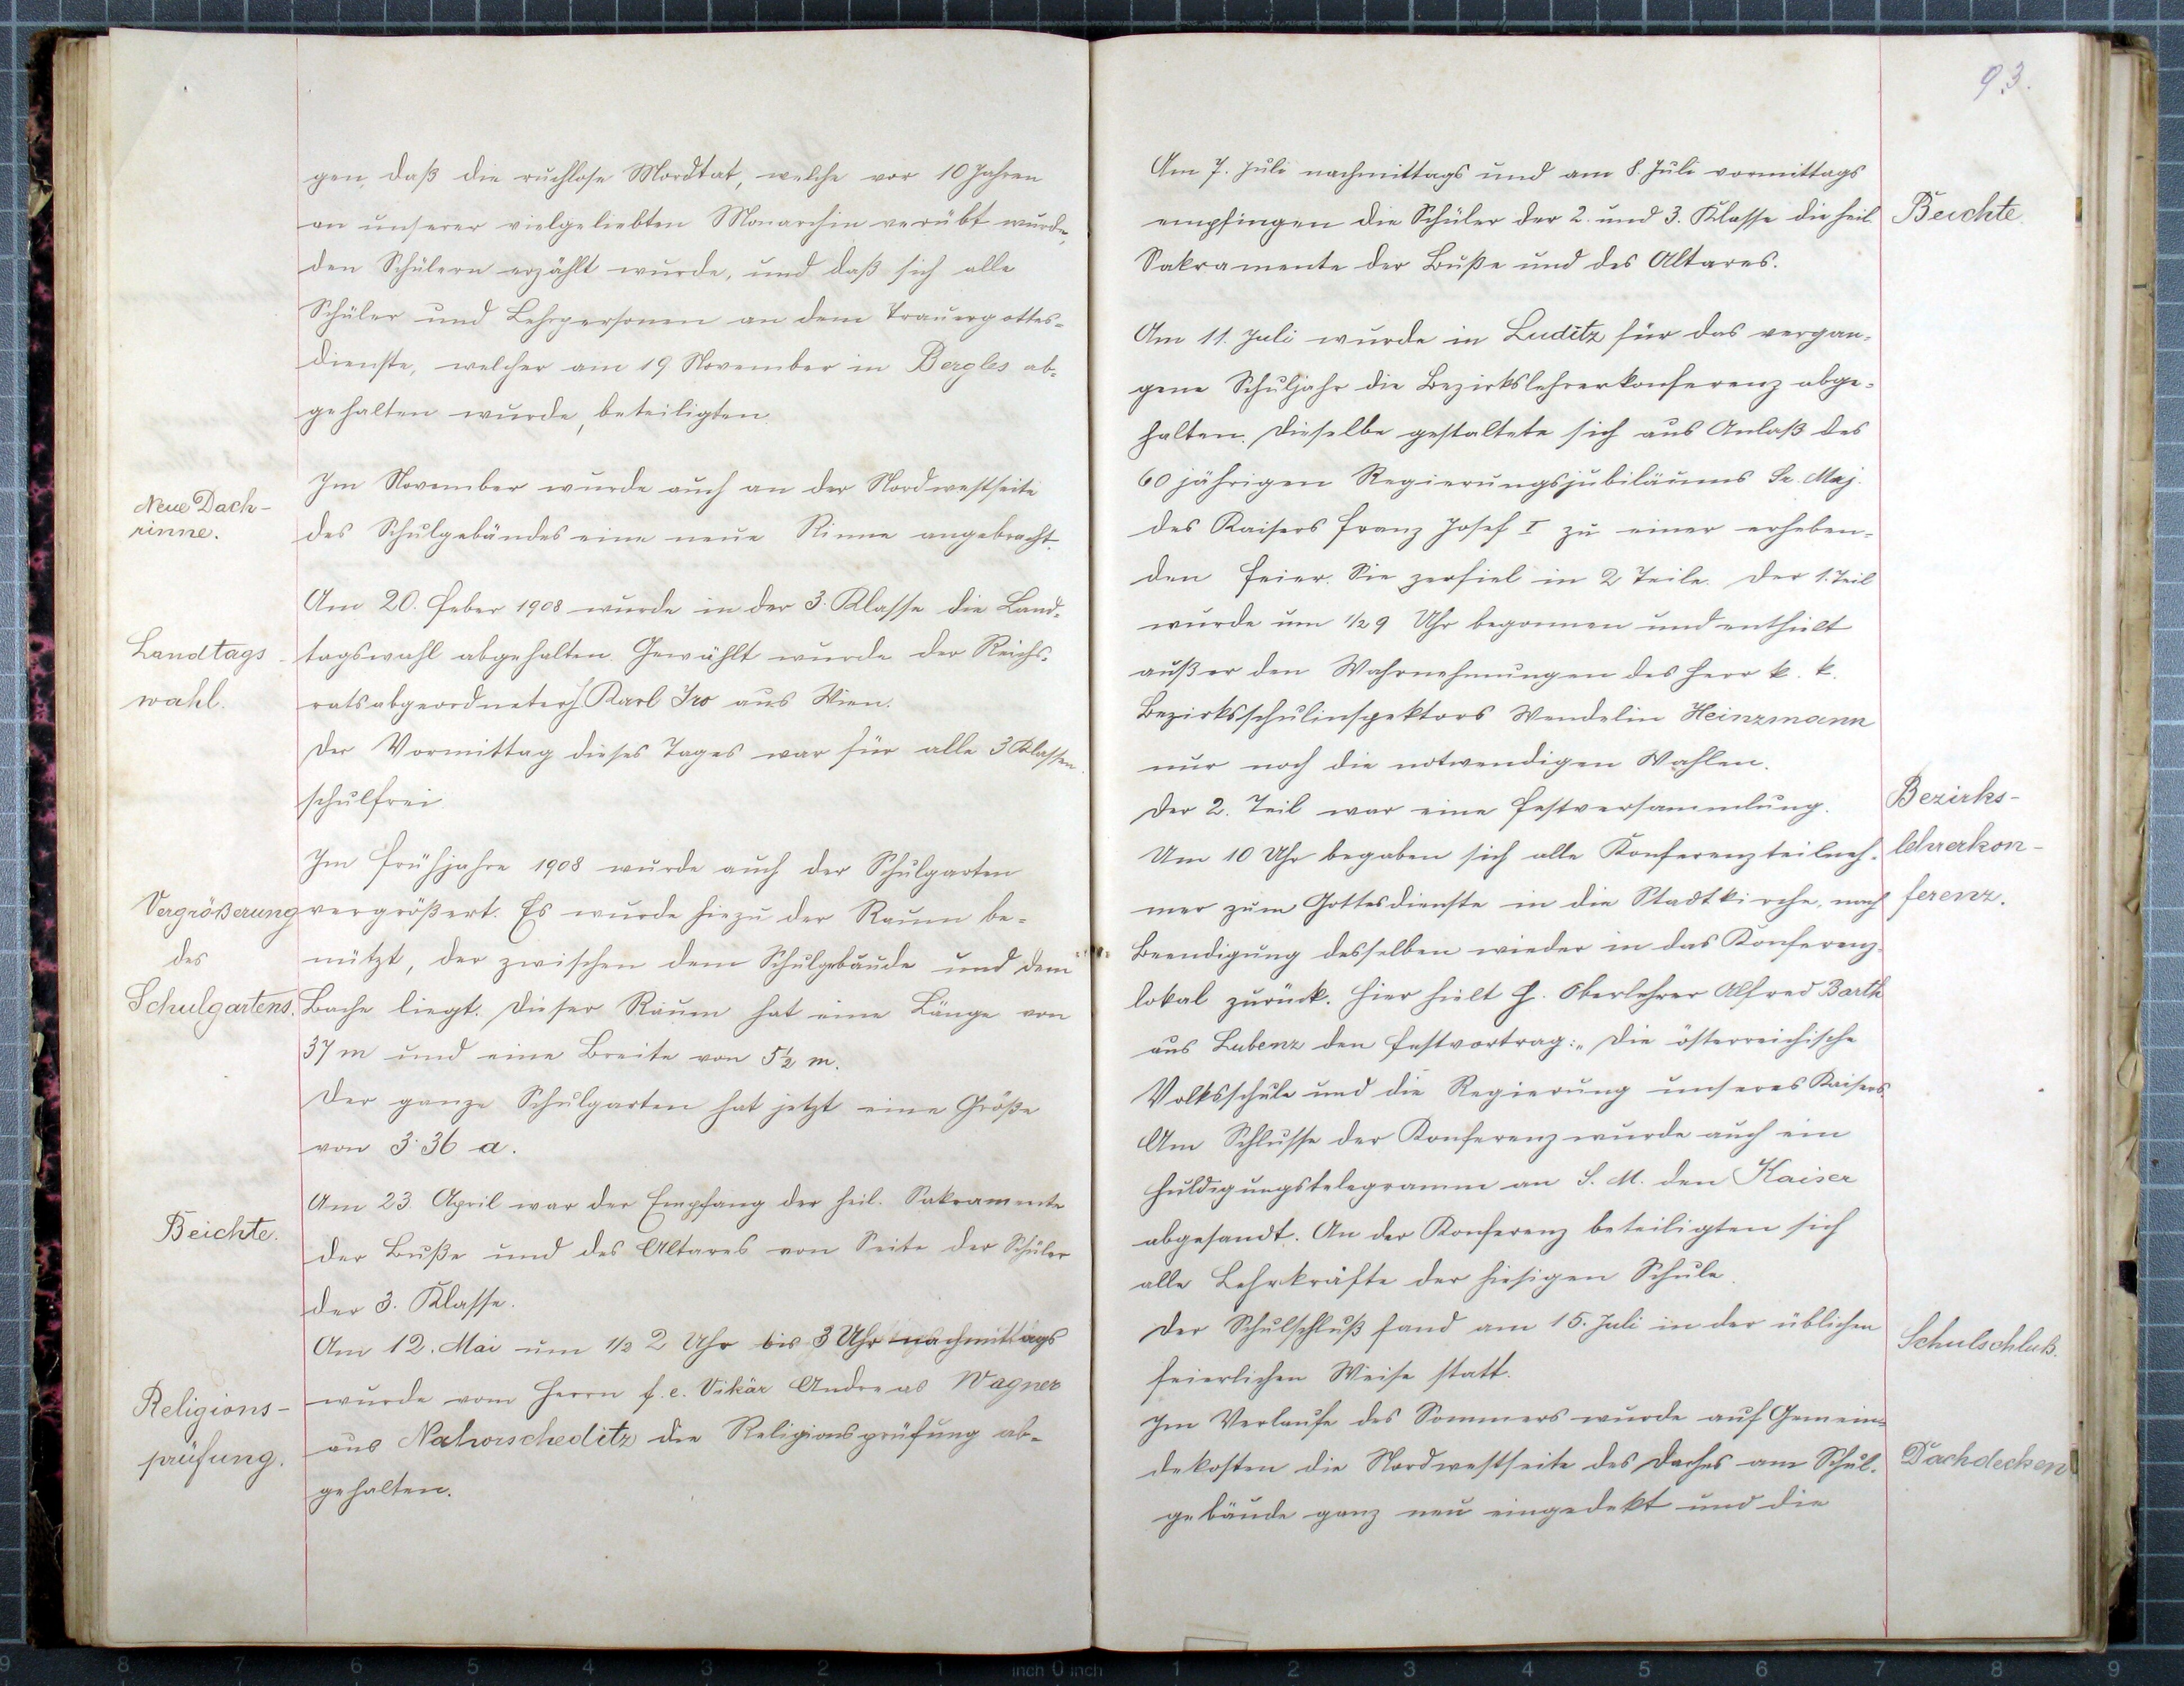 gen, daß die ruchlose Mordtat, welche vor 10 Jahren
an unserer vielgeliebten Monarchin verübt wurde,
den Schülern erzählt wurde, und daß sich alle
Schüler und Lehrpersonen an dem Trauergottes-
dienste, welcher am 19 November in Bergles ab-
gehalten wurde, beteiligten.
Neue Dach-
rinne.
Im November wurde auch an der Nordwestseite
des Schulgebäudes eine neue Rinne angebracht.
Landtags-
wahl.
Am 20. Feber 1908 wurde in der 3. Klasse die Land-
tagswahl abgehalten. Gewählt wurde der Reichs-
ratsabgeordneter H. Karl Iro aus Wien.
Der Vormittag dieses Tages war für alle 3 Klassen
schulfrei.
Vergrößerung
des
Schulgartens.
Im Frühjahre 1908 wurde auch der Schulgarten
vergrößert. Es wurde hiezu der Raum be-
nützt, der zwischen dem Schulgebäude und dem
Bache liegt. Dieser Raum hat eine Länge von
37 m und eine Breite von 5½ m.
Der ganze Schulgarten hat jetzt eine Größe
von 3·36 a.
Beichte.
Am 23. April war der Empfang der heil. Sakramente
der Buße und des Altares von Seite der Schüler
der 3. Klasse.
Religions-
prüfung.
Am 12. Mai um ½ 2 Uhr bis 3 Uhr nachmittags
wurde vom Herrn f. e. Vikär Andreas Wagner
aus Nahorscheditz die Religionsprüfung ab-
gehalten.
93.
Am 7. Juli nachmittags und am 8. Juli vormittags
empfingen die Schüler der 2. und 3. Klasse die heil.
Sakramente der Buße und des Altares.
Beichte.
Am 11. Juli wurde in Luditz für das vergan-
gene Schuljahr die Bezirkslehrerkonferenz abge-
halten. Dieselbe gestaltete sich aus Anlaß des
60 jährigen Regierungsjubiläums Sr. Maj.
des Kaisers Franz Josef I zu einer erheben-
den Feier. Sie zerfiel in 2 Teile. Der 1. Teil
wurde um ½ 9 Uhr begonnen und enthielt
außer den Wahrnehmungen des Herr k. k.
Bezirksschulinspektors Wendelin Heinzmann
nur noch die notwendigen Wahlen.
Der 2. Teil war eine Festversammlung.
Um 10 Uhr begaben sich alle Konferenzteilneh-
mer zum Gottesdienste in die Stadtkirche, nach
Beendigung desselben wieder in das Konferenz-
lokal zurück. Hier hielt H. Oberlehrer Alfred Barth
aus Lubenz den Festvortrag: „Die österreichische
Volksschule und die Regierung unseres Kaisers.
Am Schlusse der Konferenz wurde auch ein
Huldigungstelegramm an S. M. den Kaiser
abgesandt. An der Konferenz beteiligten sich
alle Lehrkräfte der hiesigen Schule.
Bezirks-
lehrerkon-
ferenz.
Der Schulschluß fand am 15. Juli in der üblichen
feierlichen Weise statt.
Schulschluß.
Im Verlaufe des Sommers wurde auf Gemein-
dekosten die Nordwestseite des Daches am Schul-
gebäude ganz neu eingedekt und die
Dachdecken
9 8 7 6 5 4 3 2 1 inch 0 inch 1 2 3 4 5 6 7 8 9